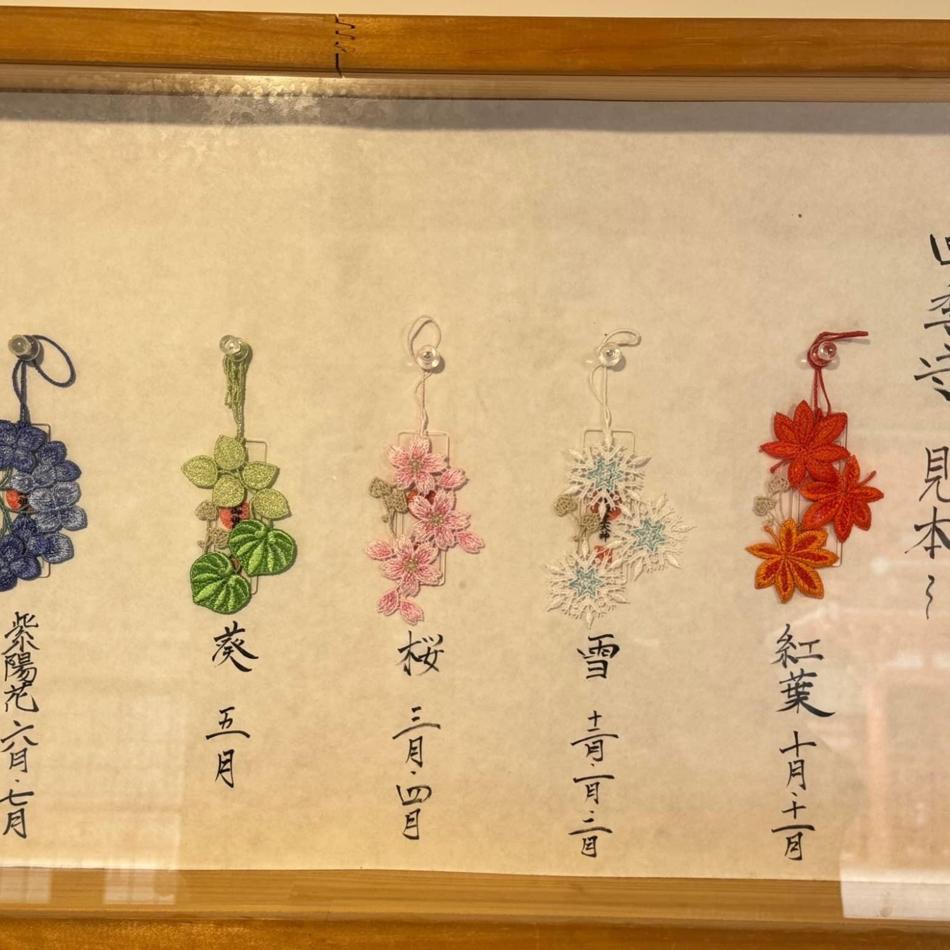 四季守 見本
紅葉 十月・十一月
雪 十二月・一月・二月
桜 三月・四月
葵 五月
紫陽花 六月・七月